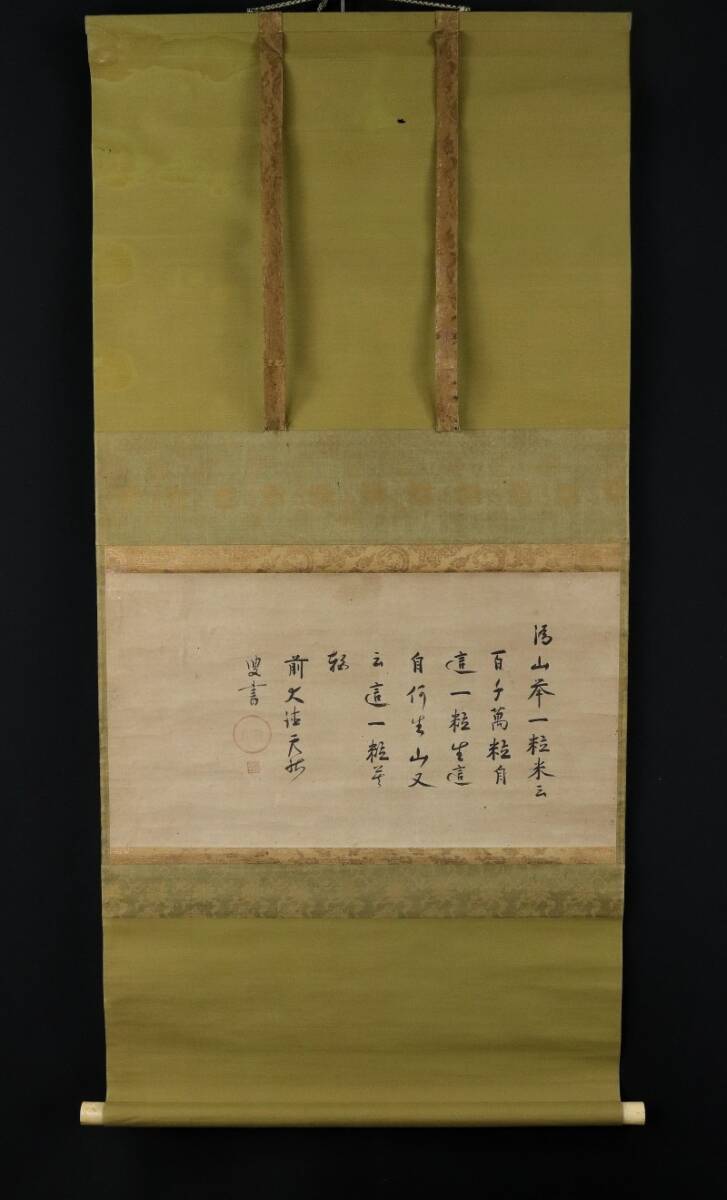 溈山举一粒米云
百千萬粒自
這一粒生這
一粒
自何生山又
云這一粒莫
軽
前大徳天
叟書